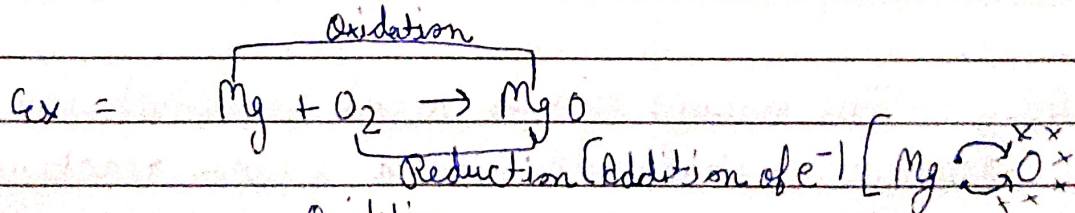 Oxidation
Ex = Mg + O₂ → MgO
Reduction (Addition of e⁻) [Mg O